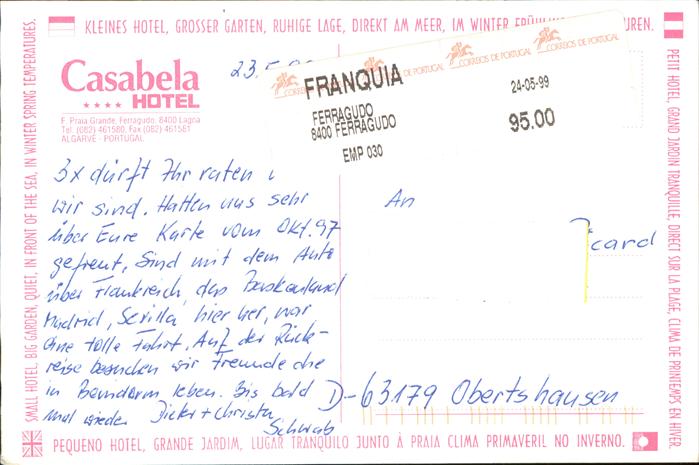 KLEINES HOTEL, GROSSER GARTEN, RUHIGE LAGE, DIREKT AM MEER, IM WINTER
UREN.
SMALL HOTEL, BIG GARDEN, QUIET, IN FRONT OF THE SEA, IN WINTER SPRING TEMPERATURES.
Casabela
★★★★ HOTEL
F. Praia Grande, Ferragudo, 8400 Lagoa
Tel: (082) 461580, Fax (082) 461581
ALGARVE - PORTUGAL
23.5.
CORREIOS DE PORTUGAL
CORREIOS DE PORTUGAL
FRANQUIA
FERRAGUDO
8400 FERRAGUDO
EMP 030
24-05-99
95.00
3x dürft Ihr raten
wir sind. Hatten uns sehr
über Eure Karte vom Okt. 97
gefreut, Sind mit dem Auto
über Frankreich, das Baskenland
Madrid, Sevilla hier her, war
eine tolle Fahrt. Auf der Rück-
reise besuchen wir Freunde die
in Benidorm leben. Bis bald
mal wieder Dieter + Christa
Schwab
An
icard
D-63179 Obertshausen
PETIT HOTEL, GRAND JARDIN TRANQUILLE, DIRECT SUR LA PLAGE, CLIMA DE PRINTEMPS EN HIVER.
PEQUENO HOTEL, GRANDE JARDIM, LUGAR TRANQUILO JUNTO À PRAIA CLIMA PRIMAVERIL NO INVERNO.